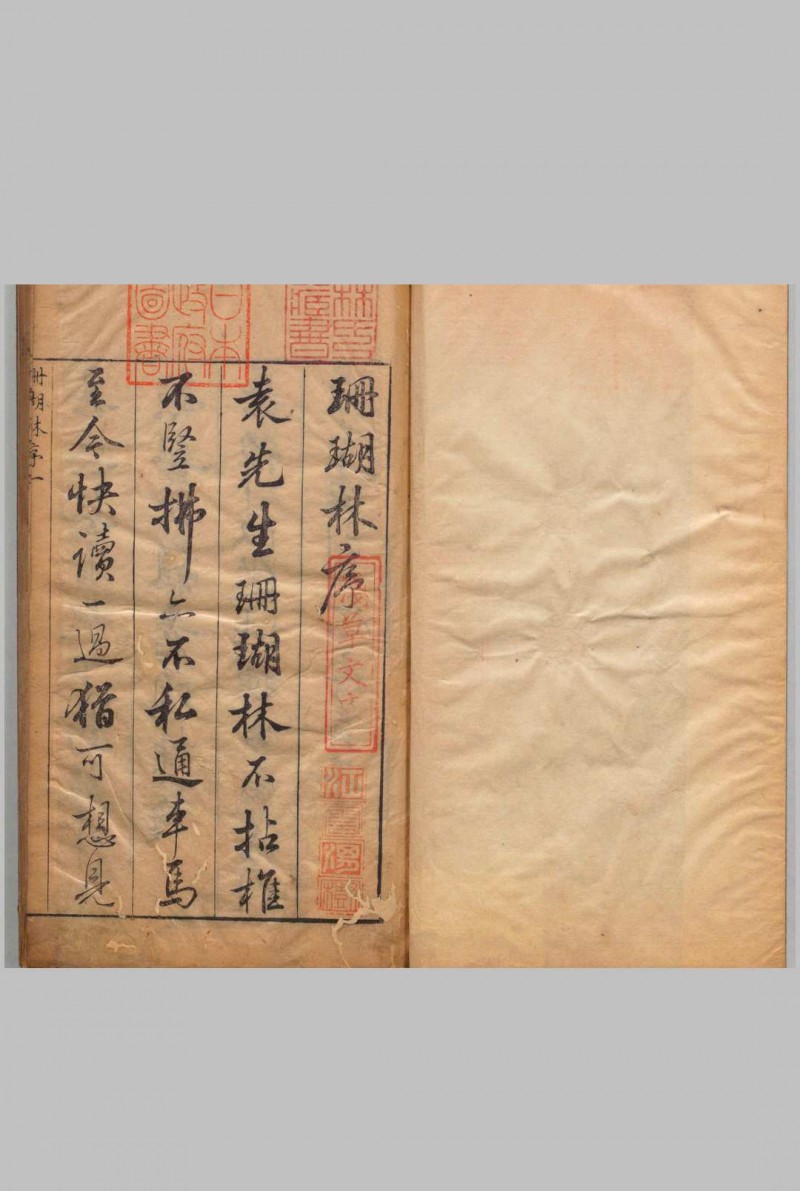 林氏藏書
日本政府圖書
珊瑚林序
淺草文庫
江雲渭樹
袁先生珊瑚林不拈椎
不竪拂亦不私通車馬
至今快讀一過猶可想見
珊瑚林序一